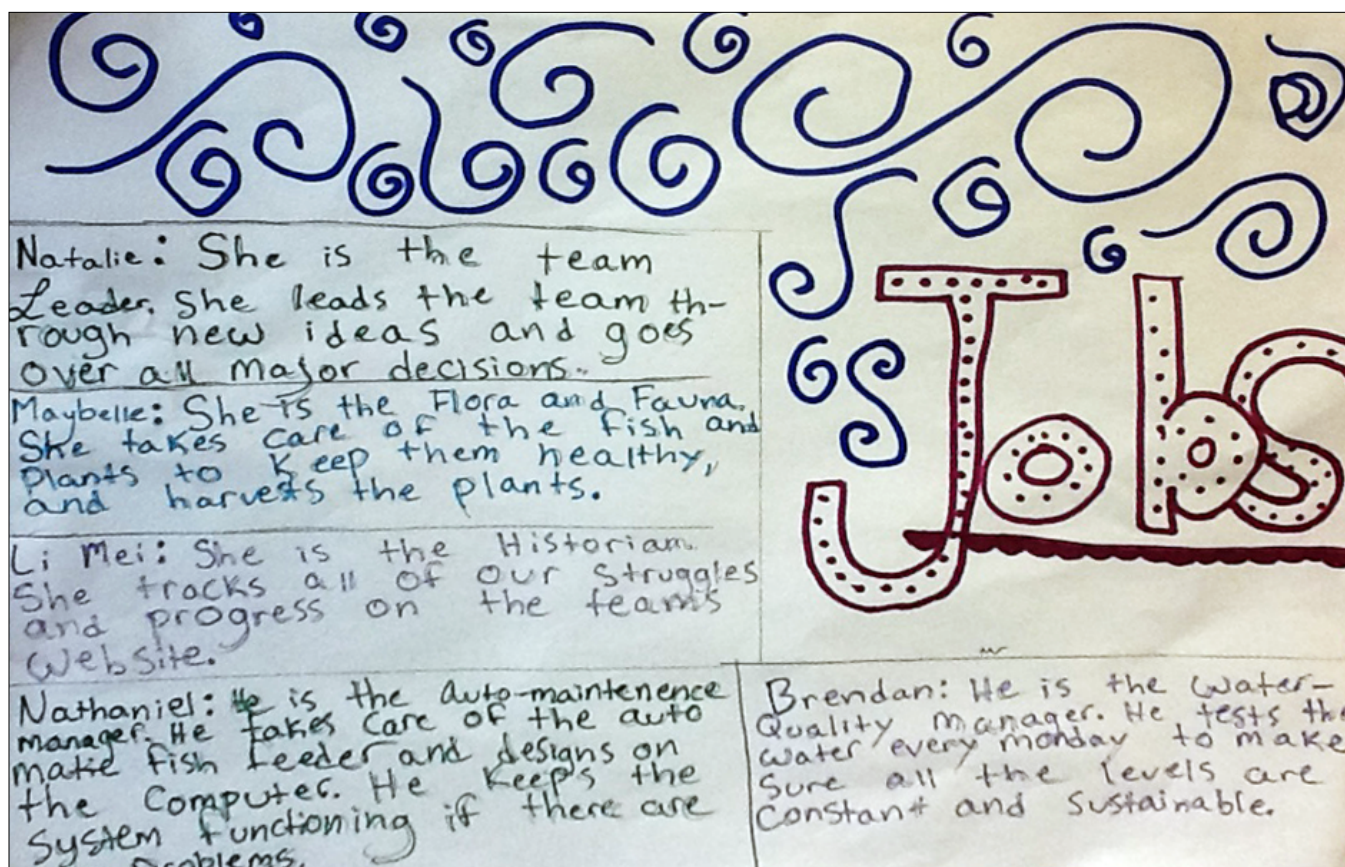 Jobs
Natalie: She is the team
Leader. She leads the team th-
rough new ideas and goes
over all major decisions.
Maybelle: She is the Flora and Fauna.
She takes care of the fish and
plants to keep them healthy,
and harvests the plants.
Li Mei: She is the Historian.
She tracks all of our struggles
and progress on the teams
website.
Nathaniel: He is the auto-maintenence
manager. He takes care of the auto
matic fish feeder and designs on
the computer. He keeps the
system functioning if there are
problems.
Brendan: He is the water-
Quality manager. He tests the
water every monday to make
sure all the levels are
constant and sustainable.